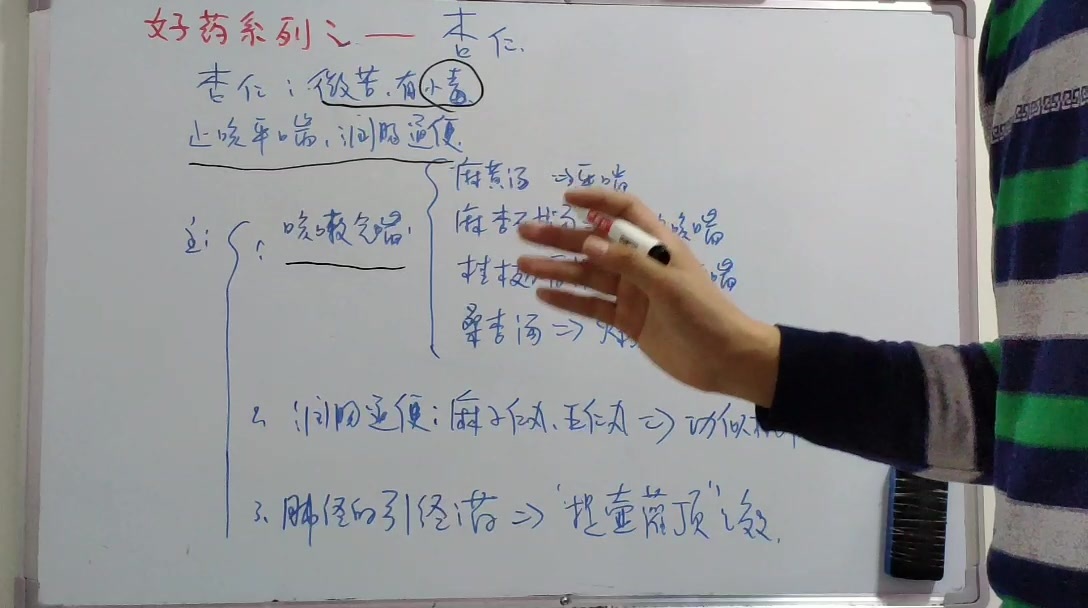 好药系列之一 杏仁
杏仁：微苦、有小毒
止咳平喘，润肠通便
主：1. 咳嗽气喘：
麻黄汤⇒平喘
麻杏石甘 咳喘
桂枝 喘
桑杏汤⇒
2. 润肠通便：麻子仁丸、五仁丸⇒功似
3. 肺经的引经药⇒"提壶灌顶"之效.